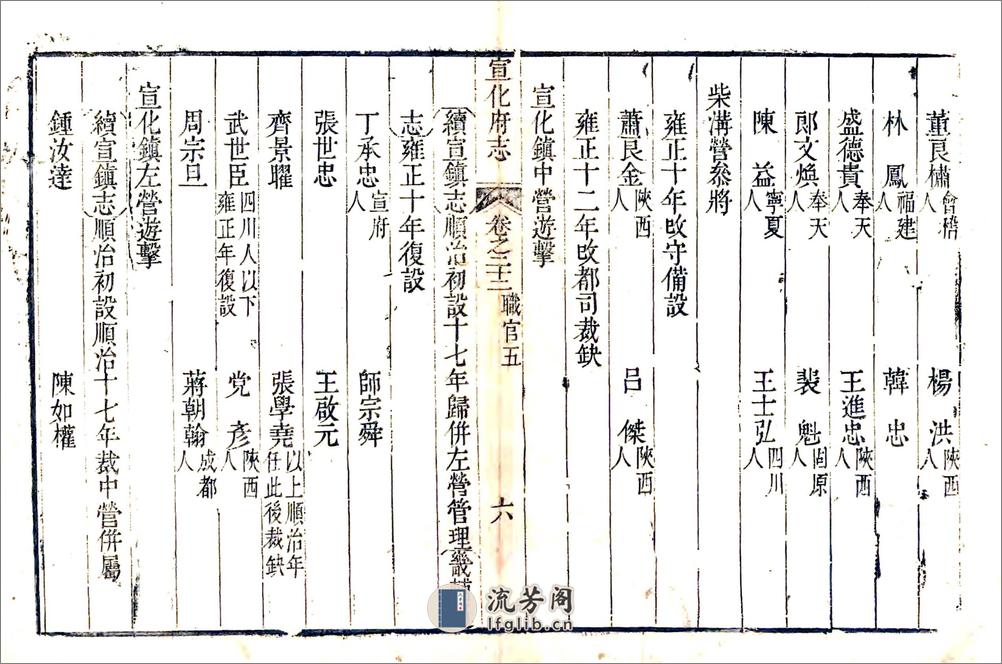 董良橚會稽人 楊洪陝西人
林鳳福建人 韓忠
盛德貴奉天人 王進忠陝西人
郎文煥奉天人 裴魁固原人
陳益寧夏人 王士弘四川人
柴溝營叅將
雍正十年改守備設
蕭良金陝西人 呂傑陝西人
雍正十二年改都司裁缺
宣化鎮中營遊擊
宣化府志 卷之二十二 職官五 六
續宣鎮志順治初設十七年歸併左營管理畿輔
志雍正十年復設
丁承忠宣府人 師宗舜
張世忠 王啟元
齊景耀 張學堯以上順治年任此後裁缺
武世臣四川人以下雍正年復設 党彥陝西人
周宗旦 蔣朝翰成都人
宣化鎮左營遊擊
續宣鎮志順治初設順治十七年裁中營併屬
鍾汝達 陳如權
流芳阁
lfglib.cn